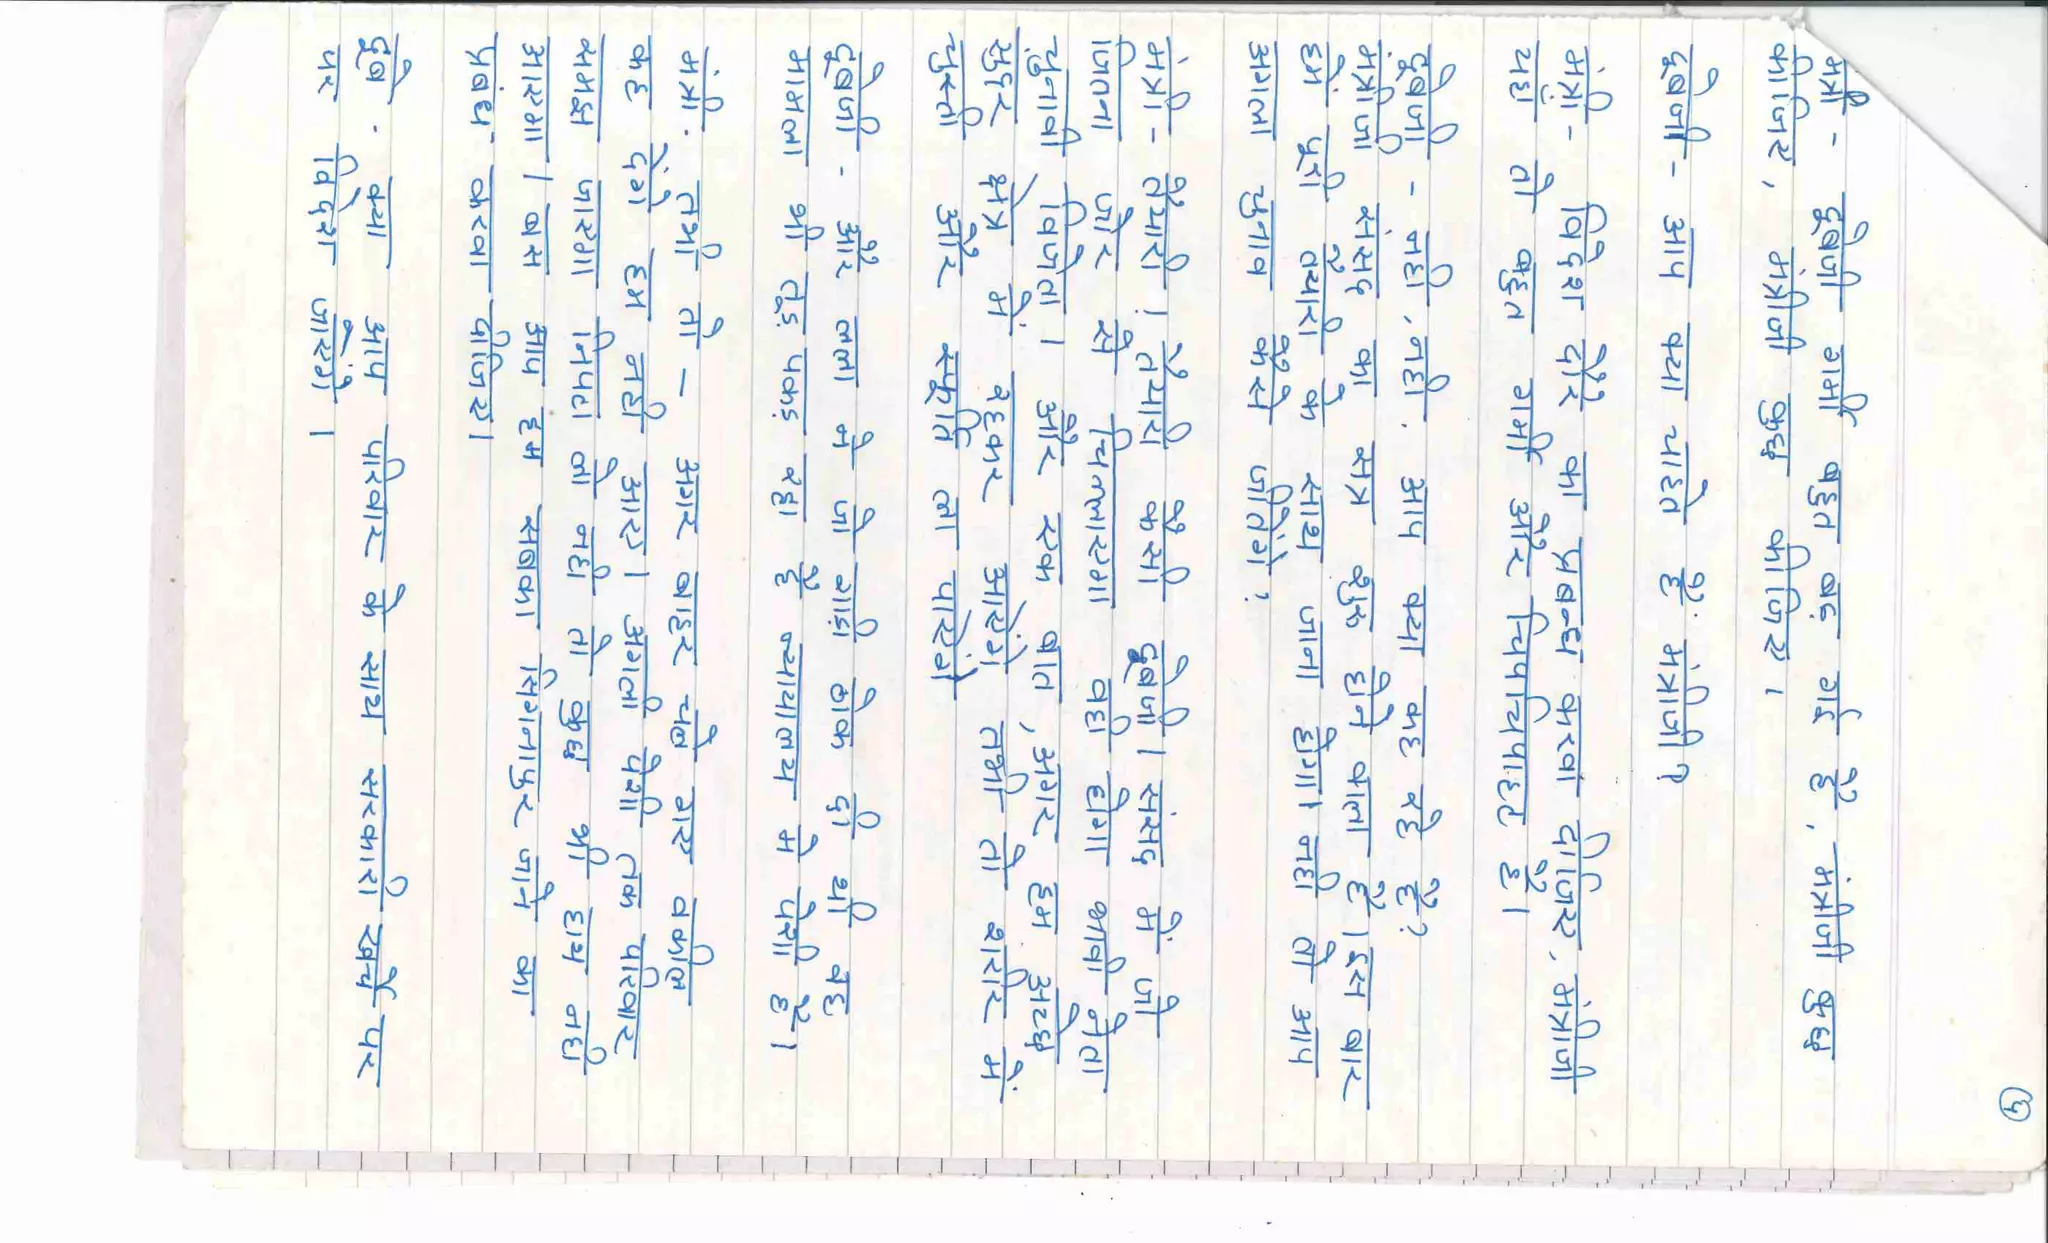 ५
मंत्री - दूबेजी गर्मी बहुत बढ़ गई है, मंत्रीजी कुछ
कीजिए, मंत्रीजी कुछ कीजिए।
दूबेजी - आप क्या चाहते हैं मंत्रीजी?
मंत्री - विदेश दौरे का प्रबन्ध करवा दीजिए, मंत्रीजी
यहां तो बहुत गर्मी और चिपचिपाहट है।
दूबेजी - नहीं, नहीं. आप क्या कह रहे हैं?
मंत्रीजी संसद का सत्र शुरू होने वाला है। इस बार
हमें पूरी तैयारी के साथ जाना होगा। नहीं तो आप
अगला चुनाव कैसे जीतेंगे?
मंत्री - तैयारी! तैयारी कैसी दूबेजी। संसद में जो
जितना जोर से चिल्लाएगा वही होगा भावी नेता
चुनावी विजेता। और एक बात, अगर हम अच्छे
सुन्दर क्षेत्र में रहकर आएंगे तभी तो शरीर में
चुस्ती और स्फूर्ति ला पाएंगे
दूबेजी - और लला ने जो गाड़ी ठोक दी थी वह
मामला भी तूल पकड़ रहा है न्यायालय में पेशी है।
मंत्री - तभी तो - अगर बाहर चले गए वकील
कह देंगे हम नहीं आए। अगली पेशी तक परिवार
समझ जाएगा निपटा लो नहीं तो कुछ भी हाथ नहीं
आएगा। बस आप हम सबका सिंगापुर जाने का
प्रबंध करवा दीजिए।
दूबे - क्या आप परिवार के साथ सरकारी खर्च पर
पर विदेश जाएंगे।